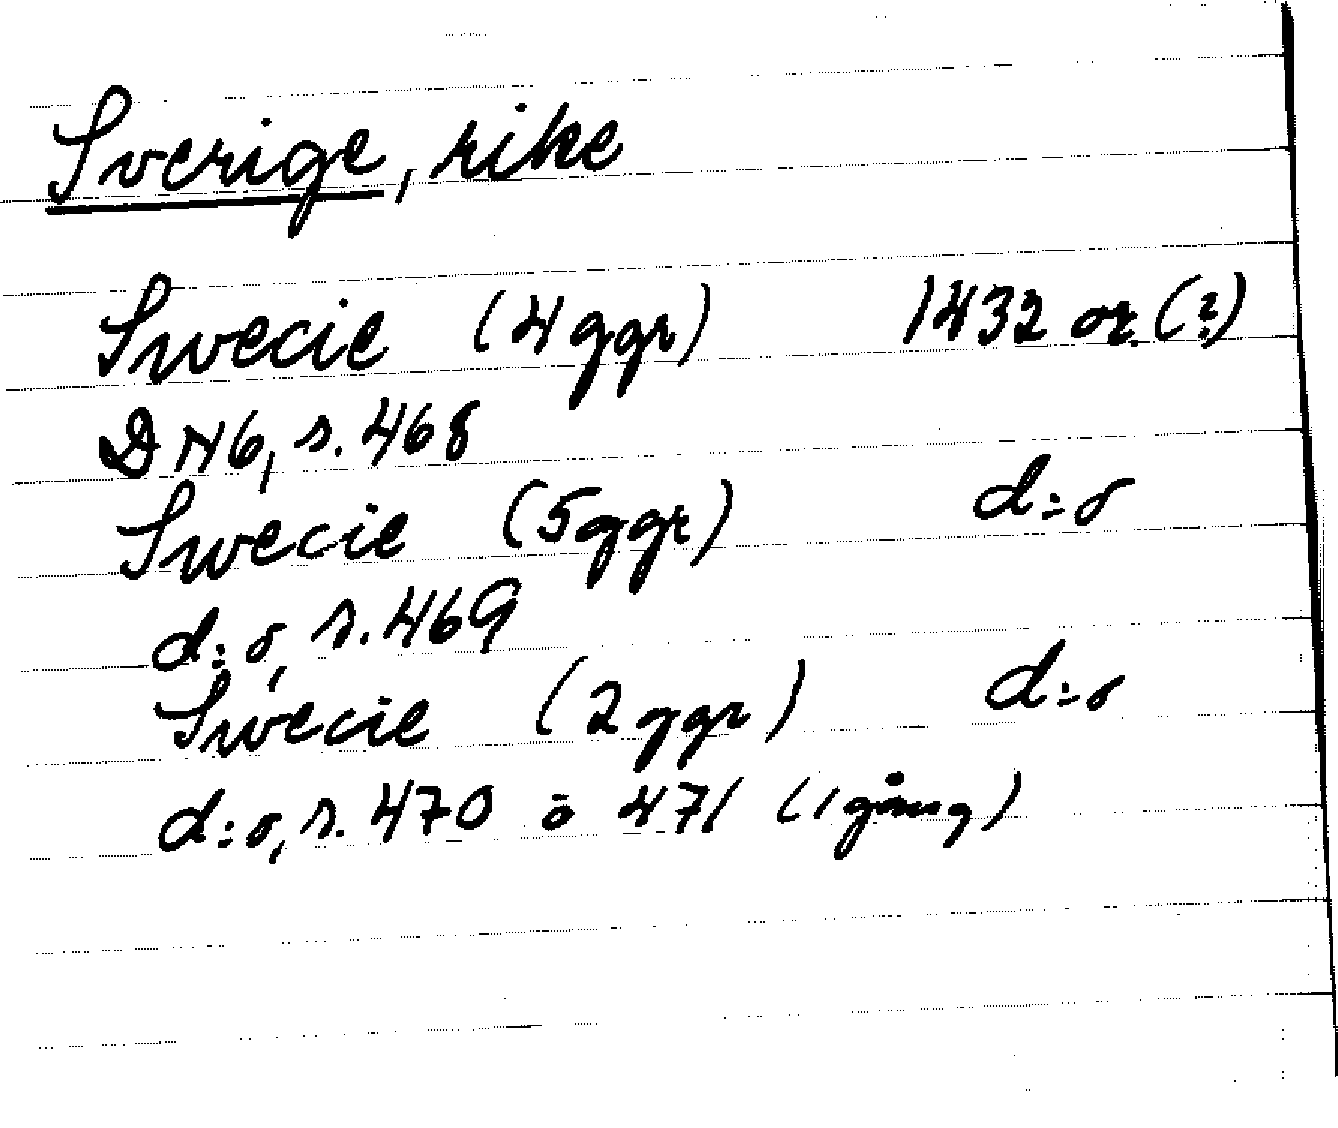 Sverige, rike
Swecie (4 ggr) 1432 or. (?)
DN6, s. 468
Swecie (5 ggr) d:o
d:o, s. 469
Swecie (2 ggr) d:o
d:o, s. 470 o 471 (1 gång)